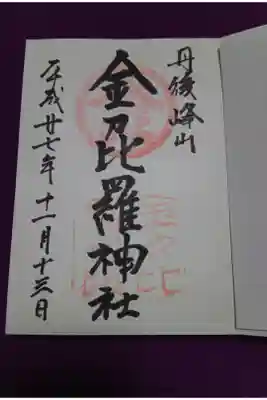 丹後峰山
金刀比羅神社
平成廿七年十一月十三日